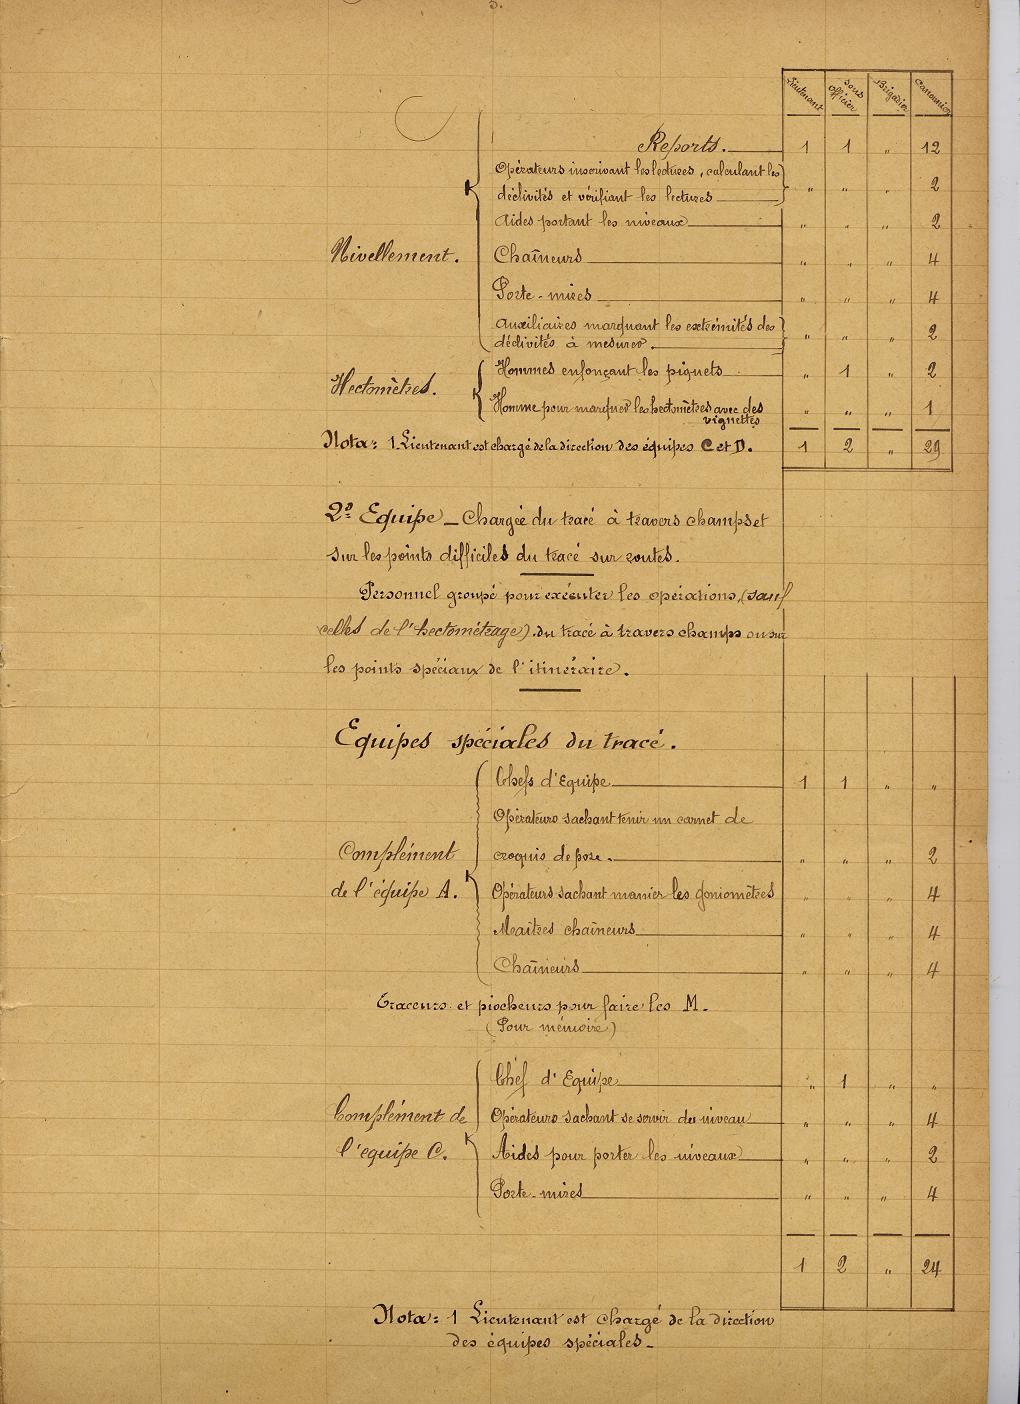 3.
Lieutenant
sous officier
Brigadier
Canonnier
Reports. 1 1 " 12
Opérateurs inscrivant les lectures, calculant les
déclivités et vérifiant les lectures " " " 2
Aides portant les niveaux " " " 2
Nivellement. Chaîneurs " " " 4
Porte-mires " " " 4
Auxiliaires marquant les extrémités des
déclivités à mesurer. " " " 2
Hectomètres. Hommes enfonçant les piquets " 1 " 2
Homme pour marquer les hectomètres avec des
vignettes " " " 1
Nota: 1 Lieutenant est chargé de la direction des équipes C et D. 1 2 " 29
2e Equipe - Chargée du tracé à travers champs et
sur les points difficiles du tracé sur routes.
Personnel groupé pour exécuter les opérations, (sauf
celles de l'hectométrage). du tracé à travers champs ou sur
les points spéciaux de l'itinéraire.
Equipes spéciales du tracé.
Chefs d'Equipe 1 1 " "
Opérateurs sachant tenir un carnet de
Complément croquis de pose. " " " 2
de l'équipe A. Opérateurs sachant manier les goniomètres " " " 4
Maîtres chaîneurs " " " 4
Chaîneurs " " " 4
Traceurs et piocheurs pour faire les M.
(Pour mémoire)
Chef d'Equipe " 1 " "
Complément de Opérateurs sachant se servir du niveau " " " 4
l'équipe C. Aides pour porter les niveaux " " " 2
Porte-mires " " " 4
1 2 " 24
Nota: 1 Lieutenant est chargé de la direction
des équipes spéciales-